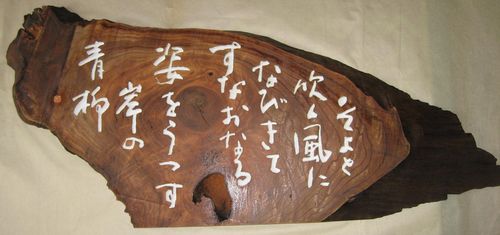 そよと
吹く風に
なびきて
すなおなる
姿をうつす
岸の
青柳